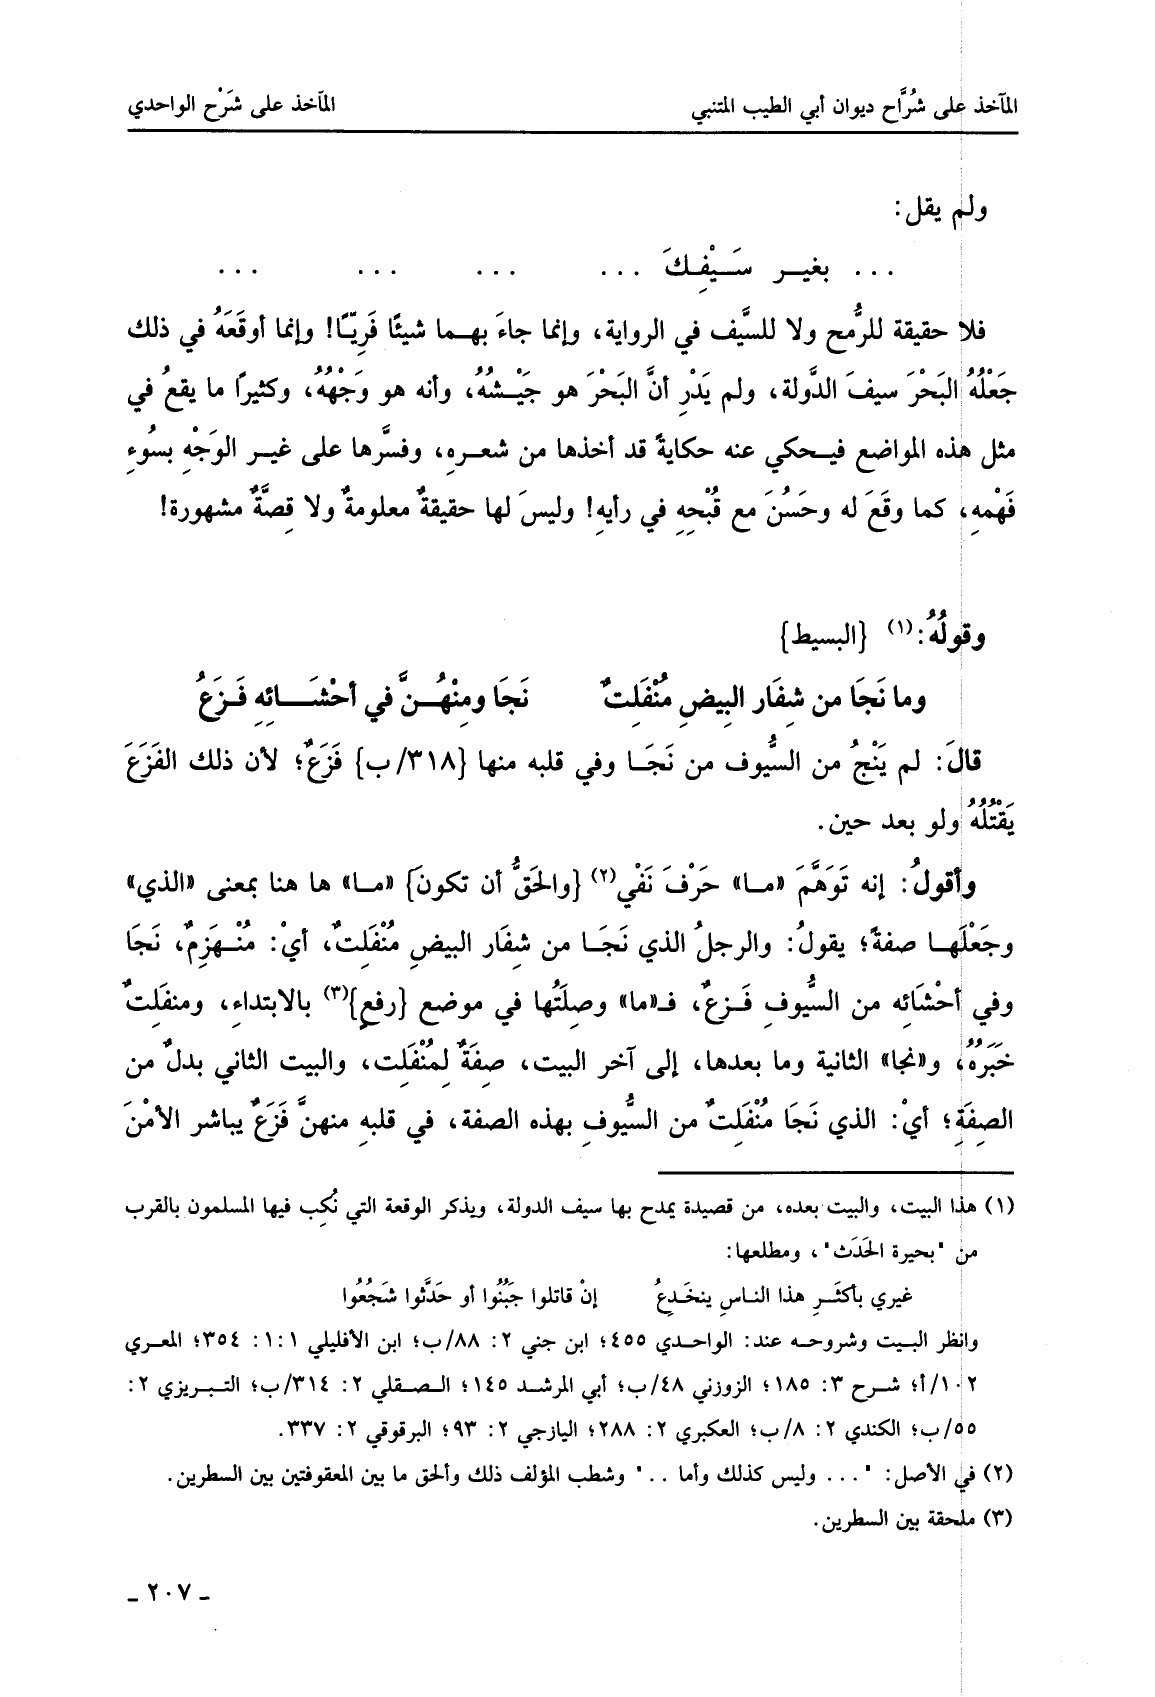 المآخذ على شُرَّاح ديوان أبي الطيب المتنبي المآخذ على شَرْح الواحدي
ولم يقل:
... بغيـر سَـيْفِـكَ ... ... ... ...
فلا حقيقة للرُّمح ولا للسَّيف في الرواية، وإنما جاءَ بهـما شيئًا فَرِيّـًا! وإنما أوقَعَهُ في ذلك
جَعْلُهُ البَحْرَ سيفَ الدَّولة، ولم يَدْرِ أنَّ البَحْرَ هو جَيْـشُهُ، وأنه هو وَجْهُهُ، وكثيرًا ما يقعُ في
مثل هذه المواضع فيـحكي عنه حكايةً قد أخذها من شعـرِهِ، وفسَّرها على غيـر الوَجْهِ بسُوءِ
فَهْمِهِ، كما وقَعَ له وحَسُنَ مع قُبْحِهِ في رأيِهِ! وليسَ لها حقيقةٌ معلومةٌ ولا قِصَّةٌ مشهورة!
وقولُهُ:(١) {البسيط}
وما نَجَا من شِفَار البِيضِ مُنْفَلِتٌ نَجَا ومِنْهُـنَّ في أحْشَـائِهِ فَـزَعُ
قالَ: لم يَنْجُ من السُّيوف من نَجَـا وفي قلبه منها {٣١٨/ب} فَزَعٌ؛ لأن ذلك الفَزَعَ
يَقْتُلُهُ ولو بعد حين.
وأقولُ: إنه تَوَهَّمَ «مـا» حَرْفَ نَفْي(٢) {والحَقُّ أن تكونَ} «مـا» ها هنا بمعنى «الذي»
وجَعْلَهـا صفةً؛ يقولُ: والرجلُ الذي نَجَـا من شِفَار البيضِ مُنْفَلِتٌ، أيْ: مُنْـهَزِمٌ، نَجَا
وفي أحْشَائِه من السُّيوفِ فَـزعٌ، فـ«ما» وصِلَتُها في موضع {رفعٍ}(٣) بالابتداءِ، ومنفلتٌ
خَبَرُهُ، و«نجا» الثانية وما بعدها، إلى آخر البيت، صِفَةٌ لمُنْفَلِت، والبيت الثاني بدلٌ من
الصِفَةِ؛ أيْ: الذي نَجَا مُنْفَلِتٌ من السُّيوفِ بهذه الصفة، في قلبِهِ منهنَّ فَزَعٌ يباشر الأمْنَ
(١) هذا البيت، والبيت بعده، من قصيدة يمدح بها سيف الدولة، ويذكر الوقعة التي نُكِب فيها المسلمون بالقرب
من "بحيرة الحَدَث"، ومطلعها:
غيري بأكثَـرِ هذا الناسِ ينخَـدِعُ إنْ قاتلوا جَبُنُوا أو حَدَّثُوا شَجُعُوا
وانظر البـيت وشروحـه عند: الواحـدي ٤٥٥؛ ابن جني ٢: ٨٨/ب؛ ابن الأفليلي ١:١: ٣٥٤؛ المعـري
١٠٢/أ؛ شـرح ٣: ١٨٥؛ الزوزني ٤٨/ب؛ أبي المرشـد ١٤٥؛ الـصـقلي ٢: ٣١٤/ب؛ التـبـريزي ٢:
٥٥/ب؛ الكندي ٢: ٨/ب؛ العكبري ٢: ٢٨٨؛ اليازجي ٢: ٩٣؛ البرقوقي ٢: ٣٣٧.
(٢) في الأصل: "... وليس كذلك وأما .." وشطب المؤلف ذلك وألحق ما بين المعقوفتين بين السطرين.
(٣) ملحقة بين السطرين.
ـ ٢٠٧ ـ